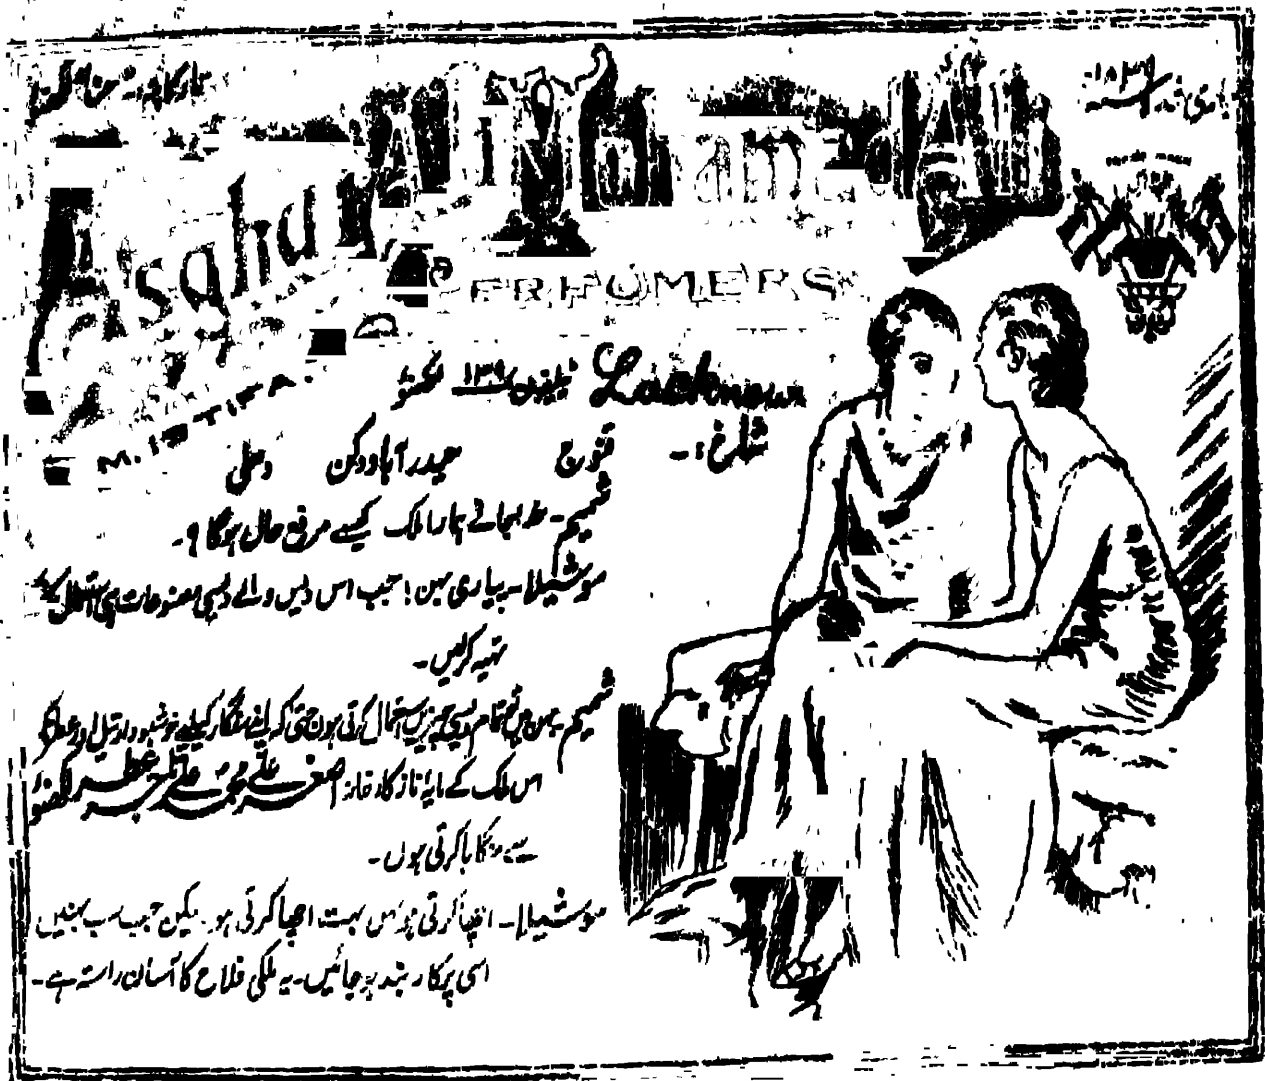 تار کا پتہ حنا لکھنؤ
Asghar Ali Mohamad Ali
TRADE MARK
PERFUMERS
Lucknow
ٹیلیفون ۱۳۹ لکھنؤ
شاخ :۔ قنوج حیدرآباد دکن دہلی
شمیم۔ نہ جانے ہمارا ملک کیسے مرفع حال ہوگا ؟۔
سوشیلا۔ پیاری بہن! جب اس دیس والے دیسی مصنوعات ہی استعمال کرنیکا
تہیہ کرلیں۔
شمیم۔ بہن میں تو تمام دیسی چیزیں استعمال کرتی ہوں حتیٰ کہ اپنے سنگار کیلئے خوشبودار تیل اور عطر
اس ملک کے مایہ ناز کارخانہ اصغر علی محمد علی تاجر عطر لکھنؤ
سے منگایا کرتی ہوں۔
سوشیلا۔ اچھا کرتی ہو بہن بہت اچھا کرتی ہو۔ لیکن جب سب بہنیں
اسی پر کاربند ہوجائیں۔ یہ ملکی فلاح کا آسان راستہ ہے۔